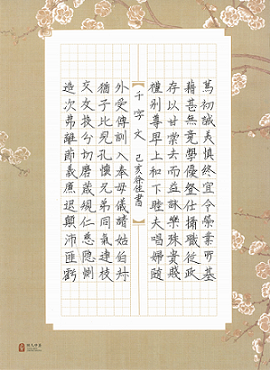 篤初誠美慎終宜令榮業所基
藉甚無竟學優登仕攝職從政
存以甘棠去而益詠樂殊貴賤
禮別尊卑上和下睦夫唱婦隨
【千字文 己亥徐佳書】
外受傅訓入奉母儀諸姑伯叔
猶子比兒孔懷兄弟同氣連枝
交友投分切磨箴規仁慈隱惻
造次弗離節義廉退顛沛匪虧